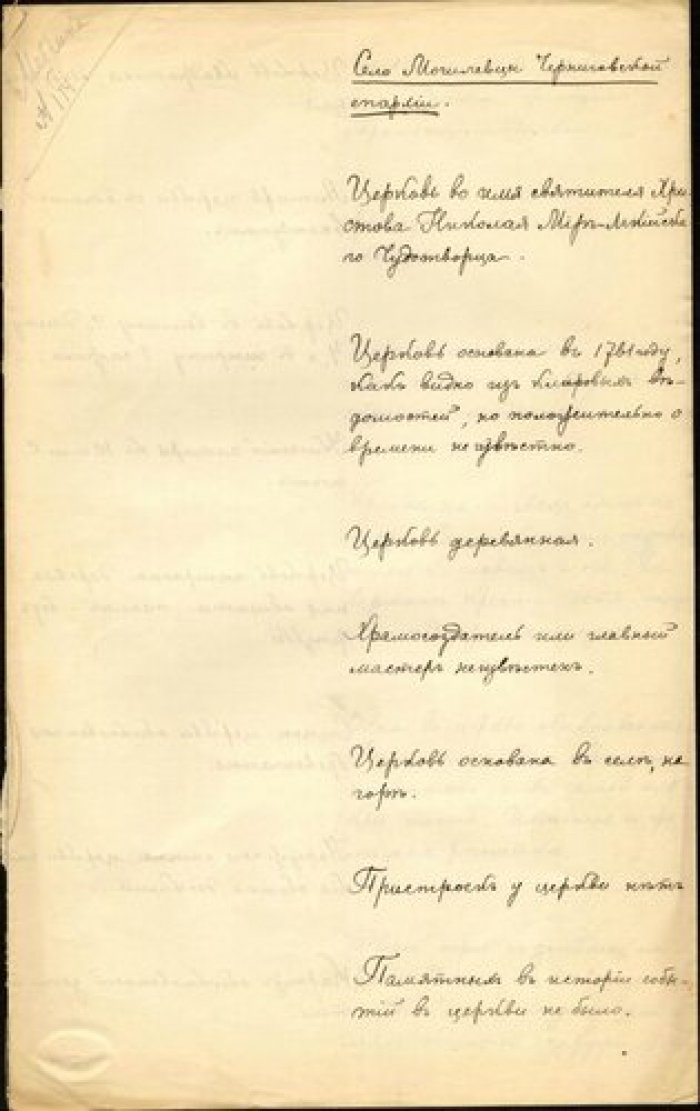 Село Могилевци Черниговской
епархіи.
Церковь во имя святителя Хри
стова Николая Мѵръ-Ликійска
го Чудотворца.
Церковь основана въ 1761 году,
какъ видно изъ клировыхъ вѣ-
домостей, но положительно о
времени неизвѣстно.
Церковь деревянная.
Храмосоздатель или главный
мастеръ неизвѣстенъ.
Церковь основана въ селѣ, на
горѣ.
Пристроекъ у церкви нѣтъ
Памятныхъ въ исторіи собы-
тій въ церкви не было.